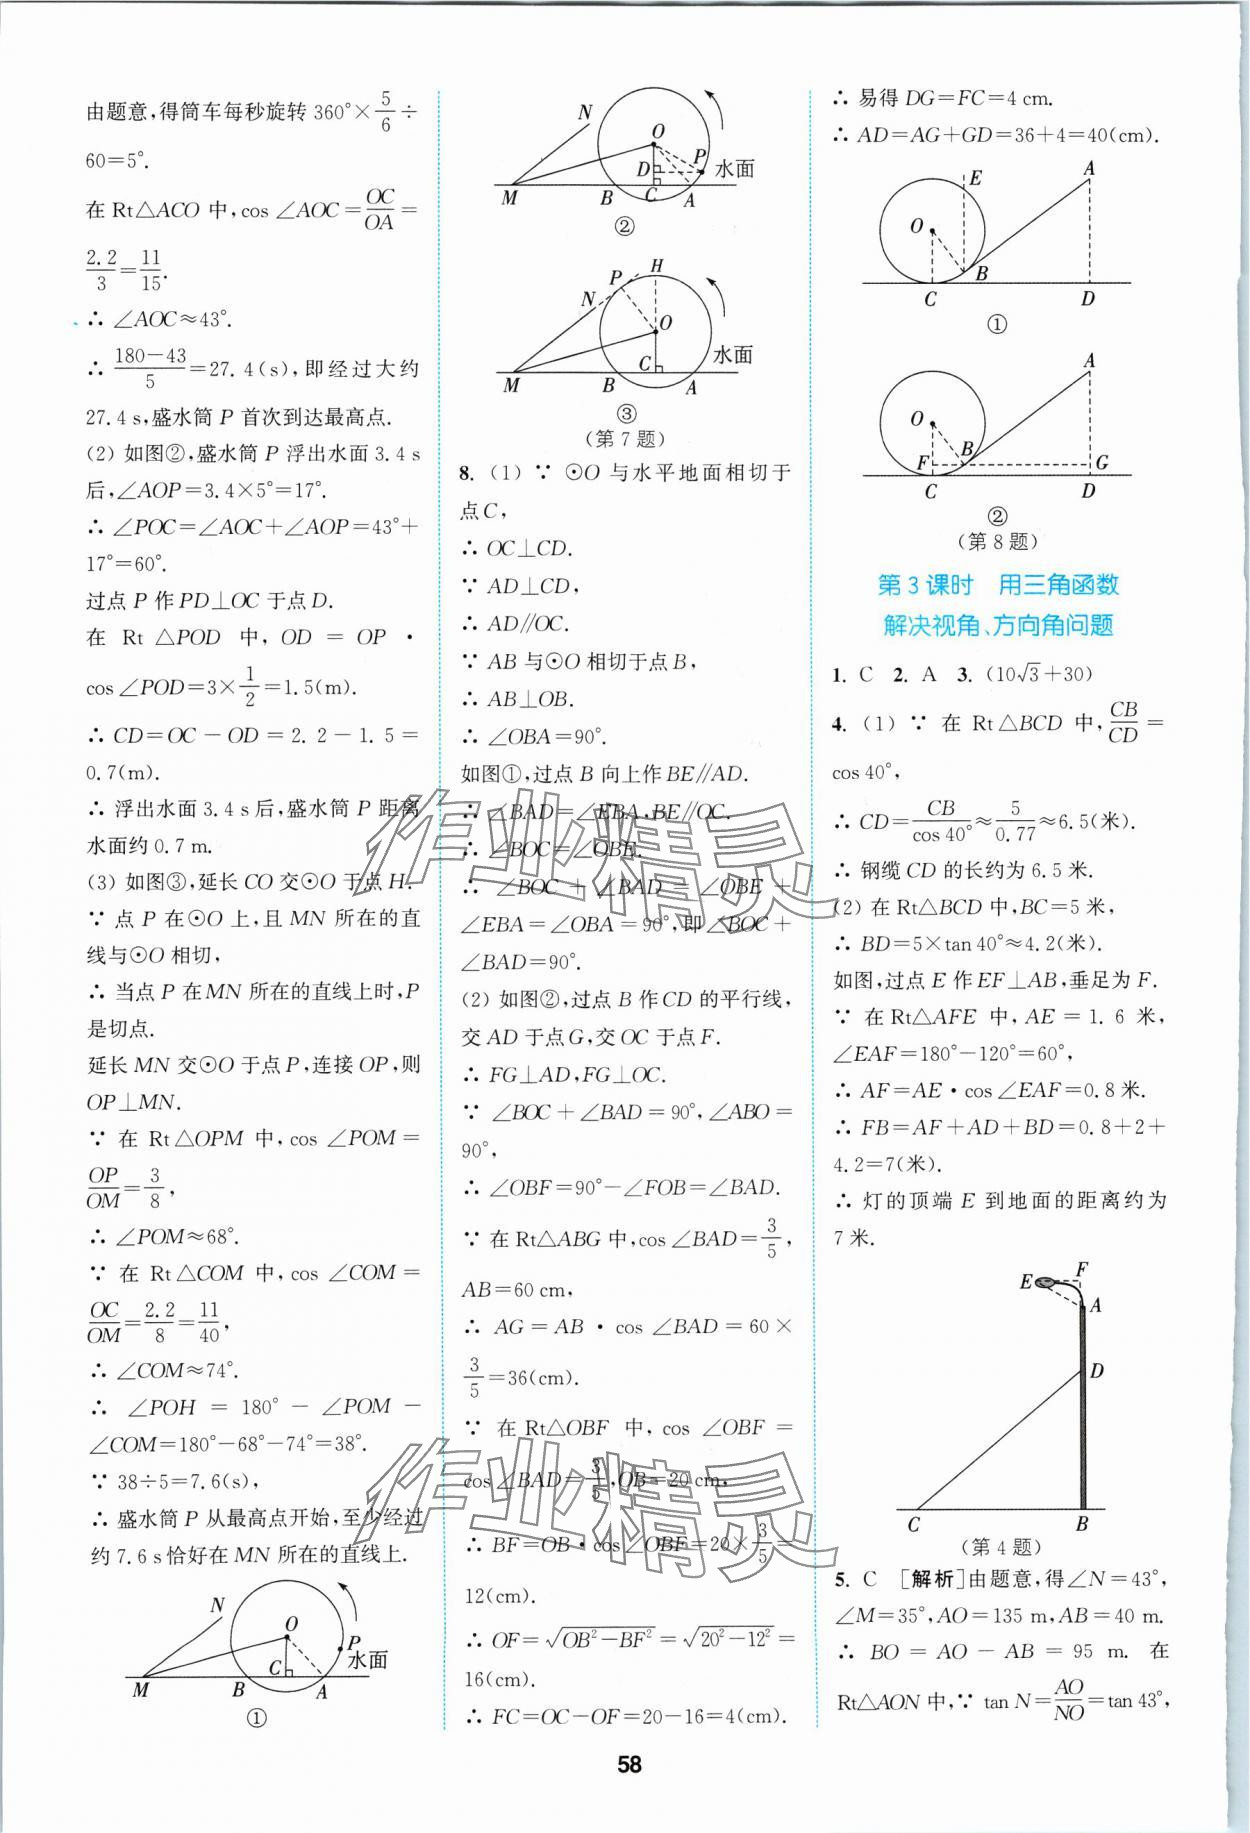 由题意,得筒车每秒旋转 360°×5/6÷
60=5°.
在 Rt△ACO 中,cos ∠AOC=OC/OA=
2.2/3=11/15.
∴ ∠AOC≈43°.
∴ (180−43)/5=27.4(s),即经过大约
27.4 s,盛水筒 P 首次到达最高点.
(2) 如图②,盛水筒 P 浮出水面 3.4 s
后,∠AOP=3.4×5°=17°.
∴ ∠POC=∠AOC+∠AOP=43°+
17°=60°.
过点 P 作 PD⊥OC 于点 D.
在 Rt △POD 中,OD = OP ·
cos ∠POD=3×1/2=1.5(m).
∴ CD=OC−OD=2.2−1.5=
0.7(m).
∴ 浮出水面 3.4 s 后,盛水筒 P 距离
水面约 0.7 m.
(3) 如图③,延长 CO 交⊙O 于点 H.
∵ 点 P 在⊙O 上,且 MN 所在的直
线与⊙O 相切,
∴ 当点 P 在 MN 所在的直线上时,P
是切点.
延长 MN 交⊙O 于点 P,连接 OP,则
OP⊥MN.
∵ 在 Rt △OPM 中,cos ∠POM=
OP/OM=3/8,
∴ ∠POM≈68°.
∵ 在 Rt△COM 中,cos ∠COM=
OC/OM=2.2/8=11/40,
∴ ∠COM≈74°.
∴ ∠POH = 180° − ∠POM −
∠COM=180°−68°−74°=38°.
∵ 38÷5=7.6(s),
∴ 盛水筒 P 从最高点开始,至少经过
约 7.6 s 恰好在 MN 所在的直线上.
N
O
P
水面
C
M
B
A
①
N
O
D
P
水面
M
B
C
A
②
H
P
N
O
水面
C
M
B
A
③
(第 7 题)
8. (1) ∵ ⊙O 与水平地面相切于
点 C,
∴ OC⊥CD.
∵ AD⊥CD,
∴ AD∥OC.
∵ AB 与⊙O 相切于点 B,
∴ AB⊥OB.
∴ ∠OBA=90°.
如图①,过点 B 向上作 BE∥AD.
∴ ∠BAD=∠EBA,BE∥OC.
∴ ∠BOC=∠OBE.
∴ ∠BOC + ∠BAD = ∠OBE +
∠EBA=∠OBA=90°,即∠BOC+
∠BAD=90°.
(2) 如图②,过点 B 作 CD 的平行线,
交 AD 于点 G,交 OC 于点 F.
∴ FG⊥AD,FG⊥OC.
∵ ∠BOC+∠BAD=90°,∠ABO=
90°,
∴ ∠OBF=90°−∠FOB=∠BAD.
∵ 在 Rt△ABG 中,cos ∠BAD=3/5,
AB=60 cm,
∴ AG=AB · cos ∠BAD=60×
3/5=36(cm).
∵ 在 Rt△OBF 中,cos ∠OBF=
cos ∠BAD=3/5,OB=20 cm,
∴ BF=OB·cos∠OBF=20×3/5=
12(cm).
∴ OF=√(OB²−BF²)=√(20²−12²)=
16(cm).
∴ FC=OC−OF=20−16=4(cm).
∴ 易得 DG=FC=4 cm.
∴ AD=AG+GD=36+4=40(cm).
E
A
O
B
C
D
①
A
O
B
F
G
C
D
②
(第 8 题)
第 3 课时 用三角函数
解决视角、方向角问题
1. C 2. A 3. (10√3+30)
4. (1) ∵ 在 Rt △BCD 中,CB/CD=
cos 40°,
∴ CD=CB/cos 40°≈5/0.77≈6.5(米).
∴ 钢缆 CD 的长约为 6.5 米.
(2) 在 Rt△BCD 中,BC=5 米,
∴ BD=5×tan 40°≈4.2(米).
如图,过点 E 作 EF⊥AB,垂足为 F.
∵ 在 Rt△AFE 中,AE=1.6 米,
∠EAF=180°−120°=60°,
∴ AF=AE·cos ∠EAF=0.8 米.
∴ FB=AF+AD+BD=0.8+2+
4.2=7(米).
∴ 灯的顶端 E 到地面的距离约为
7 米.
F
E
A
D
C
B
(第 4 题)
5. C [解析]由题意,得∠N=43°,
∠M=35°,AO=135 m,AB=40 m.
∴ BO = AO − AB = 95 m. 在
Rt△AON 中,∵ tan N=AO/NO=tan 43°,
作业精灵
作业精灵
58